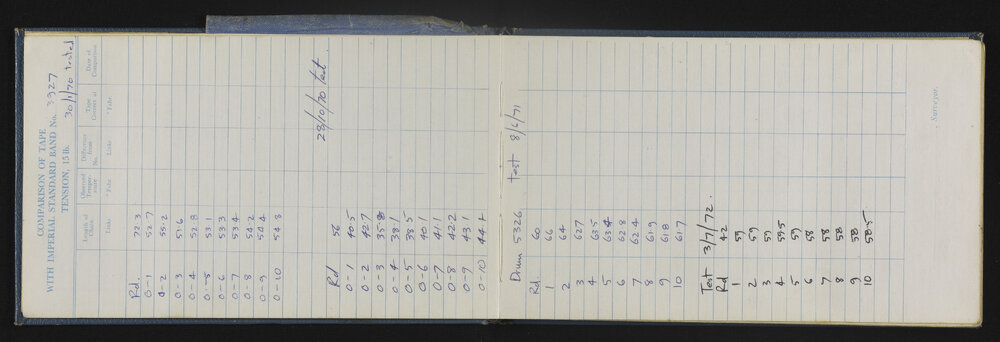 COMPARISON OF TAPE
WITH IMPERIAL STANDARD BAND No. 3927
TENSION, 15 lb. 30/1/70 tested
Length of Chain Observed Temperature Difference from No. Tape Correct at Date of Comparison
Links ° Fahr Links ° Fahr
Rd. 72.3
0-1 52.7
0-2 55.2
0-3 51.6
0-4 52.8
0-5 53.1
0-6 53.3
0-7 53.4
0-8 54.2
0-9 54.4
0-10 54.8
28/10/70 test
Rd 56
0-1 40.5
0-2 42.7
0-3 35.8
0-4 38.1
0-5 38.5
0-6 40.1
0-7 41.1
0-8 42.2
0-9 43.1
0-10 44.1
Drum 5326 test 8/6/71
Rd. 60
1 66
2 64
3 62.7
4 63.5
5 63.4
6 62.8
7 62.4
8 61.9
9 61.8
10 61.7
Test 3/7/72.
Rd 42
1 59
2 59
3 59
4 59.5
5 59
6 58
7 58
8 58
9 58
10 58.5
Surveyor.